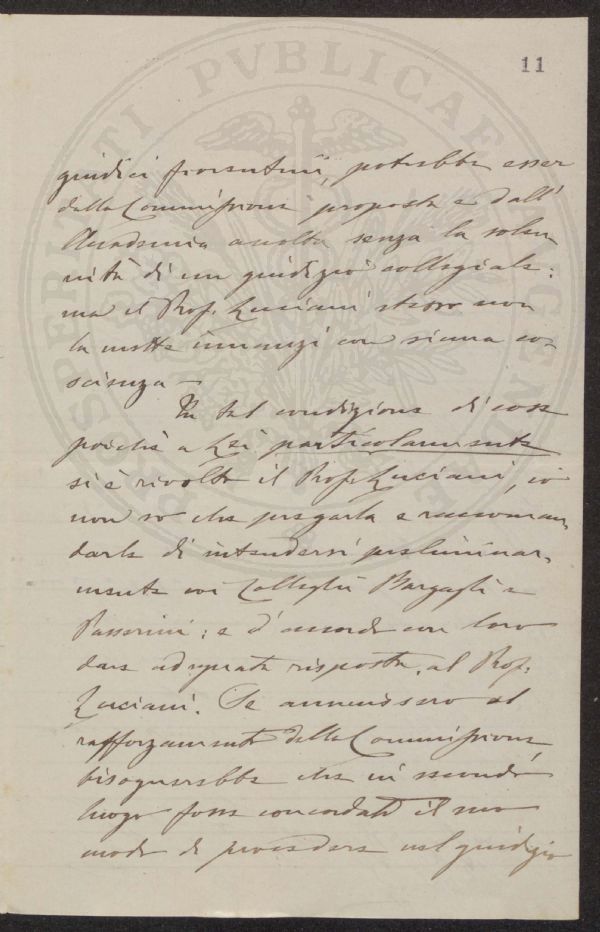 PROSPERITATI PVBLICAE AVGENDAE
11
giudici fiorentini, potrebbe esser
dalla Commissione proposta e dall'
Accademia accolta senza la solen-
nità di un giudizio collegiale:
ma il Prof. Luciani stesso non
la mette innanzi con sicura co-
scienza —
In tal condizione di cose
poichè a Lei particolarmente
si è rivolto il Prof. Luciani, io
non so che pregarla e raccoman-
darle di intendersi preliminar-
mente coi Colleghi Bargagli e
Passerini; e d'accordo con loro
dare adeguata risposta al Prof.
Luciani. Se annuissero al
rafforzamento della Commissione,
bisognerebbe che in secondo
luogo fosse concordato il suo
modo di procedere nel giudizio